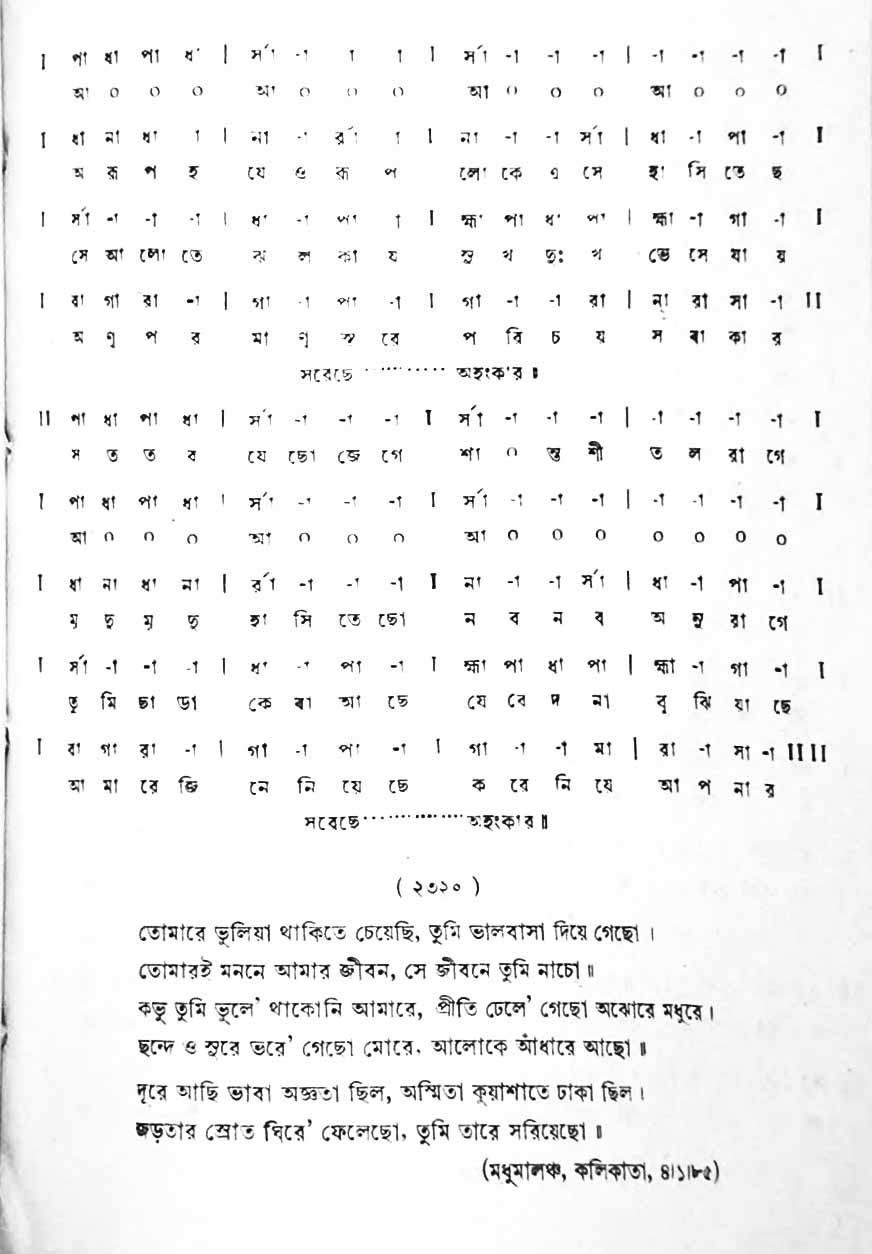 I পা ধা পা ধা | র্সা -া -া -া I র্সা -া -া -া | -া -া -া -া I
আ ০ ০ ০ আ ০ ০ ০ আ ০ ০ ০ আ ০ ০ ০
I ধা না ধা -া | না -া র্রা -া I না -া -া র্সা | ধা -া পা -া I
অ রূ প হ যে ও রূ প লো কে এ সে হা সি তে ছ
I র্সা -া -া -া | ধা -া পা -া I হ্মা পা ধা পা | হ্মা -া গা -া I
সে আ লো তে ঝ ল কা য সু খ দুঃ খ ভে সে যা য়
I রা গা রা -া | গা -া পা -া I গা -া -া রা | ন্া রা সা -া II
অ ণু প র মা ণু স্ত রে প রি চ য় স বা কা র
সবেছে ············ অহংকার॥
II পা ধা পা ধা | র্সা -া -া -া I র্সা -া -া -া | -া -া -া -া I
স ত ত ব যে ছো জে গে শা ০ ন্ত শী ত ল রা গে
I পা ধা পা ধা | র্সা -া -া -া I র্সা -া -া -া | -া -া -া -া I
আ ০ ০ ০ আ ০ ০ ০ আ ০ ০ ০ ০ ০ ০ ০
I ধা না ধা না | র্রা -া -া -া I না -া -া র্সা | ধা -া পা -া I
মৃ দু মৃ দু হা সি তে ছো ন ব ন ব অ নু রা গে
I র্সা -া -া -া | ধা -া পা -া I হ্মা পা ধা পা | হ্মা -া গা -া I
তু মি ছা ড়া কে বা আ ছে যে বে দ না বু ঝি য়া ছে
I রা গা রা -া | গা -া পা -া I গা -া -া মা | রা -া সা -া II II
আ মা রে জি নে নি য়ে ছে ক রে নি য়ে আ প না র
সবেছে·················অহংকার॥
( ২৩২০ )
তোমারে ভুলিয়া থাকিতে চেয়েছি, তুমি ভালবাসা দিয়ে গেছো।
তোমারই মননে আমার জীবন, সে জীবনে তুমি নাচো॥
কভু তুমি ভুলে' থাকোনি আমারে, প্রীতি ঢেলে' গেছো অঝোরে মধুরে।
ছন্দে ও সুরে ভরে' গেছো মোরে. আলোকে আঁধারে আছো॥
দূরে আছি ভাবা অজ্ঞতা ছিল, অস্মিতা কুয়াশাতে ঢাকা ছিল।
জড়তার স্রোত ঘিরে' ফেলেছো, তুমি তারে সরিয়েছো॥
(মধুমালঞ্চ, কলিকাতা, ৪।১।৮৫)